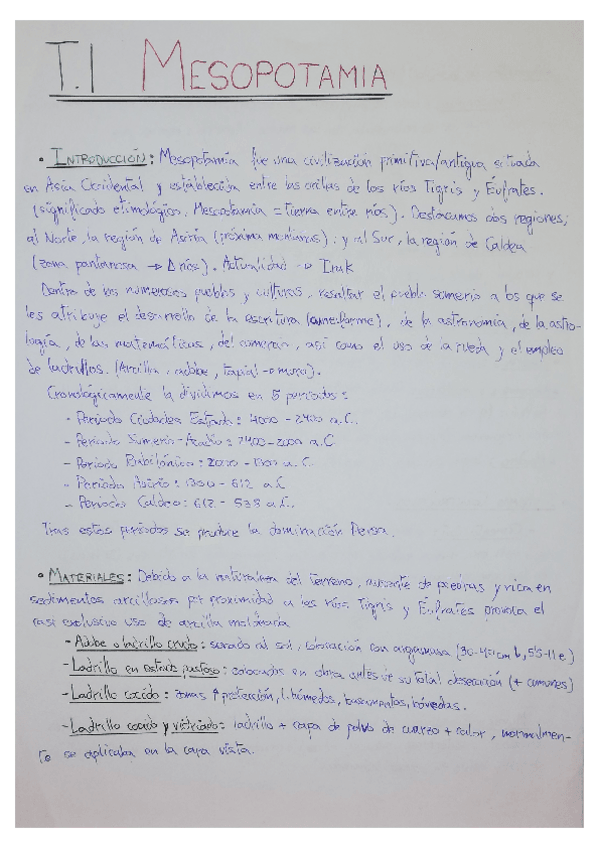 T.1 MESOPOTAMIA
• INTRODUCCIÓN: Mesopotamia fue una civilización primitiva/antigua situada
en Asia Occidental y establecida entre las orillas de los ríos Tigris y Éufrates.
(significado etimológico, Mesopotamia = tierra entre ríos). Destacamos dos regiones;
al Norte, la región de Asiria (próxima montañas); y al Sur, la región de Caldea
(zona pantanosa → Δ ríos). Actualidad → Irak
Dentro de los numerosos pueblos y culturas, resaltar el pueblo sumerio a los que se
les atribuye el desarrollo de la escritura (cuneiforme), de la astronomía, de la astro-
logía, de las matemáticas, del comercio, así como el uso de la rueda y el empleo
de ladrillos. (Arcilla, adobe, tapial → muro).
Cronológicamente la dividimos en 5 periodos:
- Periodo Ciudades Estado: 4000 - 2400 a.C.
- Periodo Sumerio-Acadio: 2400-2000 a.C.
- Periodo Babilónico: 2000 - 1300 a.C.
- Periodo Asirio: 1300 - 612 a.C
- Periodo Caldeo: 612 - 538 a.C.
Tras estos periodos se produce la dominación Persa.
• MATERIALES: Debido a la naturaleza del terreno, ausente de piedras y rica en
sedimentos arcillosos por proximidad a los ríos Tigris y Éufrates provoca el
casi exclusivo uso de arcilla moldearla
- Adobe o ladrillo crudo: secado al sol, colocación con argamasa (30-45 cm b, 5'5-11 e.)
- Ladrillo en estado pastoso: colocados en obra antes de su total desecación (+ comunes)
- Ladrillo cocido: zonas ↑ protección, l. húmedos, basamentos, bóvedas.
- Ladrillo cocido y vidriado: ladrillo + capa de polvo de cuarzo + calor, normalmen-
te se aplicaba en la cara vista.